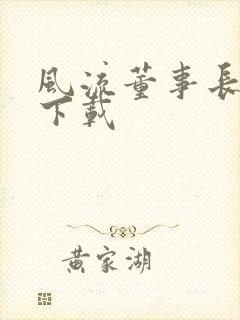 風流董事長
下載
黃家湖